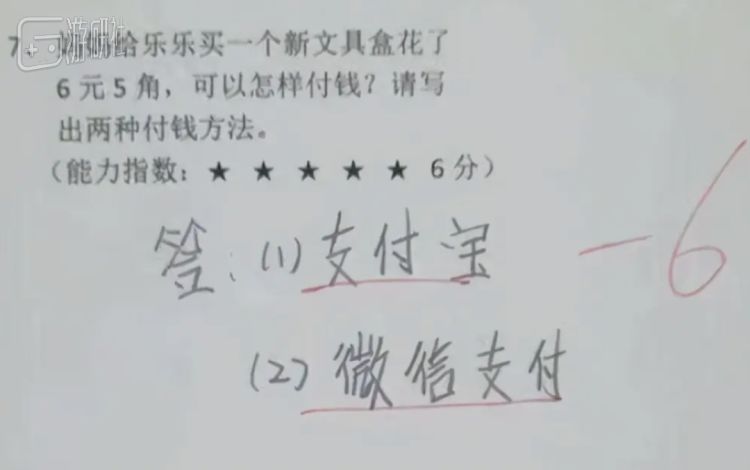 游研社
7. 奶奶给乐乐买一个新文具盒花了
6元5角，可以怎样付钱？请写
出两种付钱方法。
（能力指数：★ ★ ★ ★ ★ 6分）
答：(1)支付宝
-6
(2)微信支付